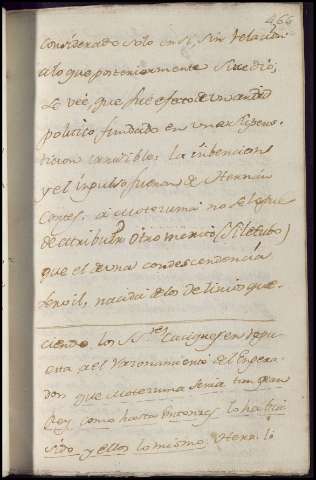 466
considerado solo en sí, sin relacion
a lo que posteriormente sucedió,
se vée, que fue efecto de un
politico fundado en una
ticion la inbencion
y el impulso fueron de Hernan
Cortes, a Moteruma no se le pue
de atribuir otro merito (si le tubo)
que el de una condescendencia
servil, nacida de los delirios que
ciendo los S.res Caciques en repu
esta a el Razonamiento del Empera
dor que Moteruma seria tan gran
Rey como hasta entonzes lo habia
sido y ellos lo mismo. Herra. li